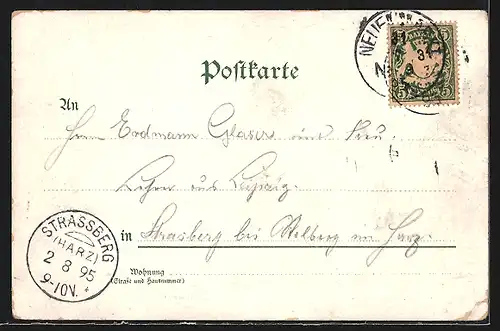 NEUEN
BAYERN
5 5
Postkarte
An
Herrn Erdmann Glaser und Frau.
Lehrer aus Leipzig.
in Strasberg bei Stolberg im Harz.
Wohnung
(Straße und Hausnummer)
STRASSBERG
(HARZ)
2 8 95
9-10V.